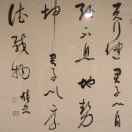 天行健君子以自
強不息地勢
坤君子以厚
德載物